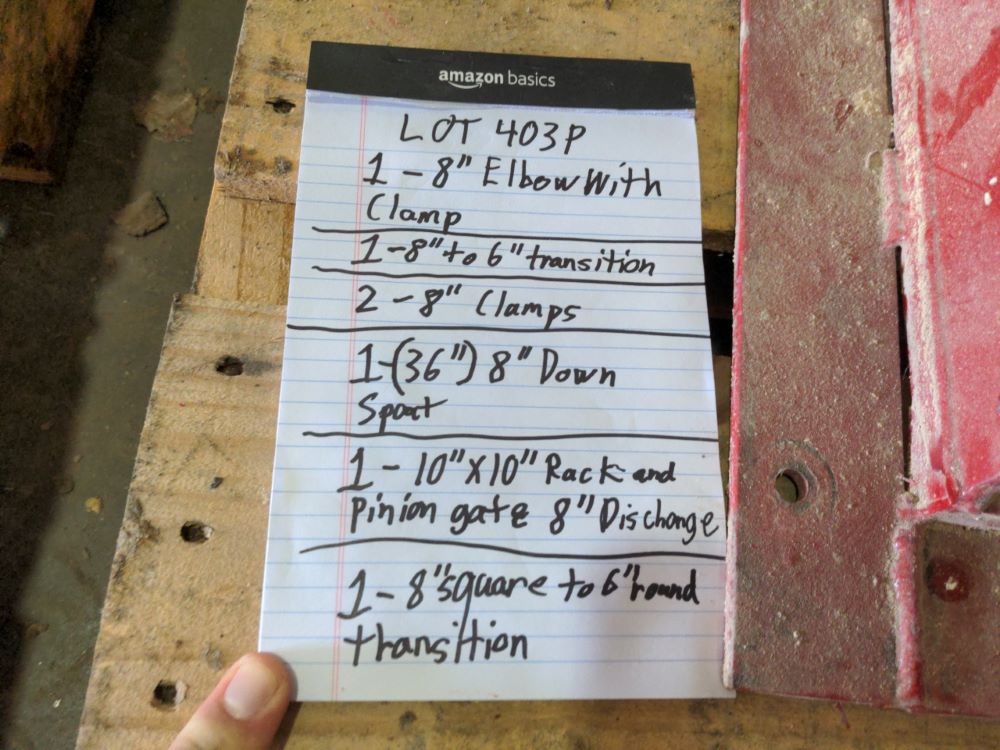 amazon basics
LOT 403P
1 - 8" Elbow With
Clamp
1 - 8" to 6" transition
2 - 8" Clamps
1 - (36") 8" Down
Spout
1 - 10" X 10" Rack and
Pinion gate 8" Discharge
1 - 8" square to 6" round
transition